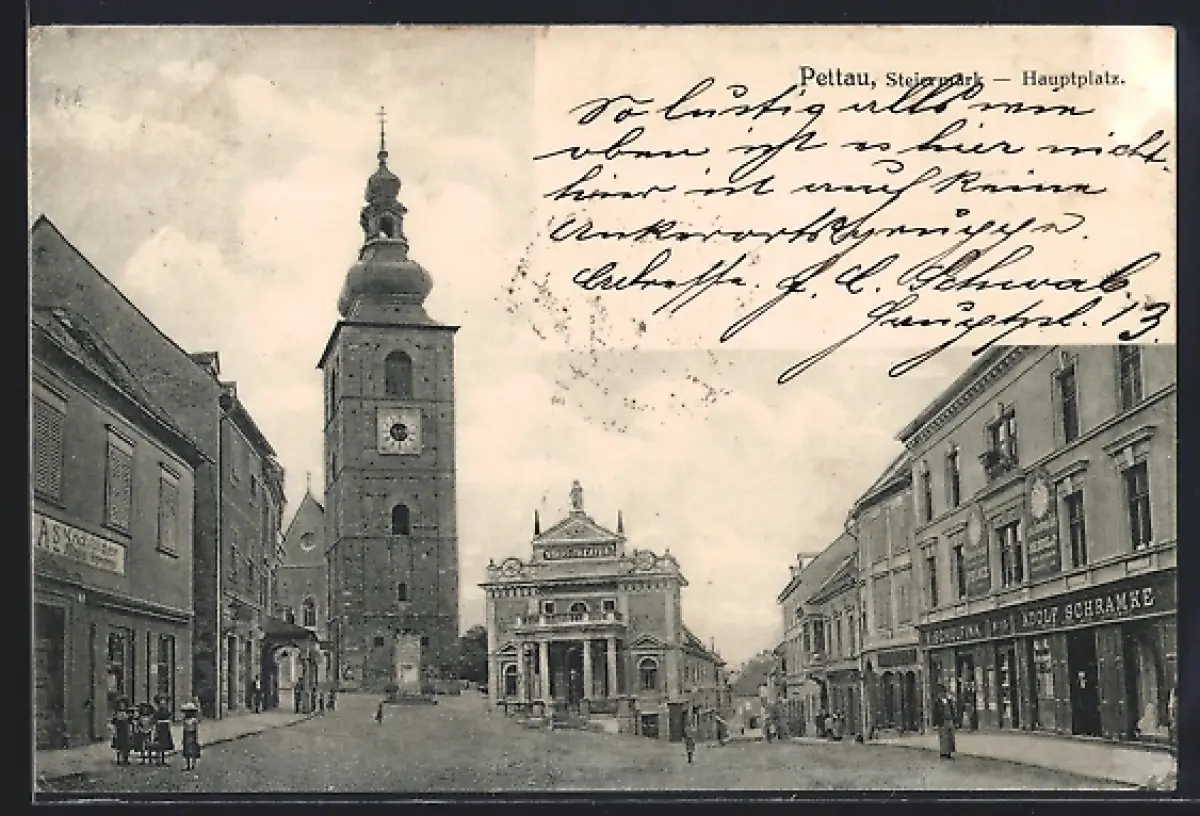 Pettau, Steiermark — Hauptplatz.
So lustig alls wie
oben ist es hier nicht.
hier ist auch keine
Ankerortsgruppe.
Adresse. J. C. Schwab.
Hauptpl. 13.
ADOLF SCHRAMKE